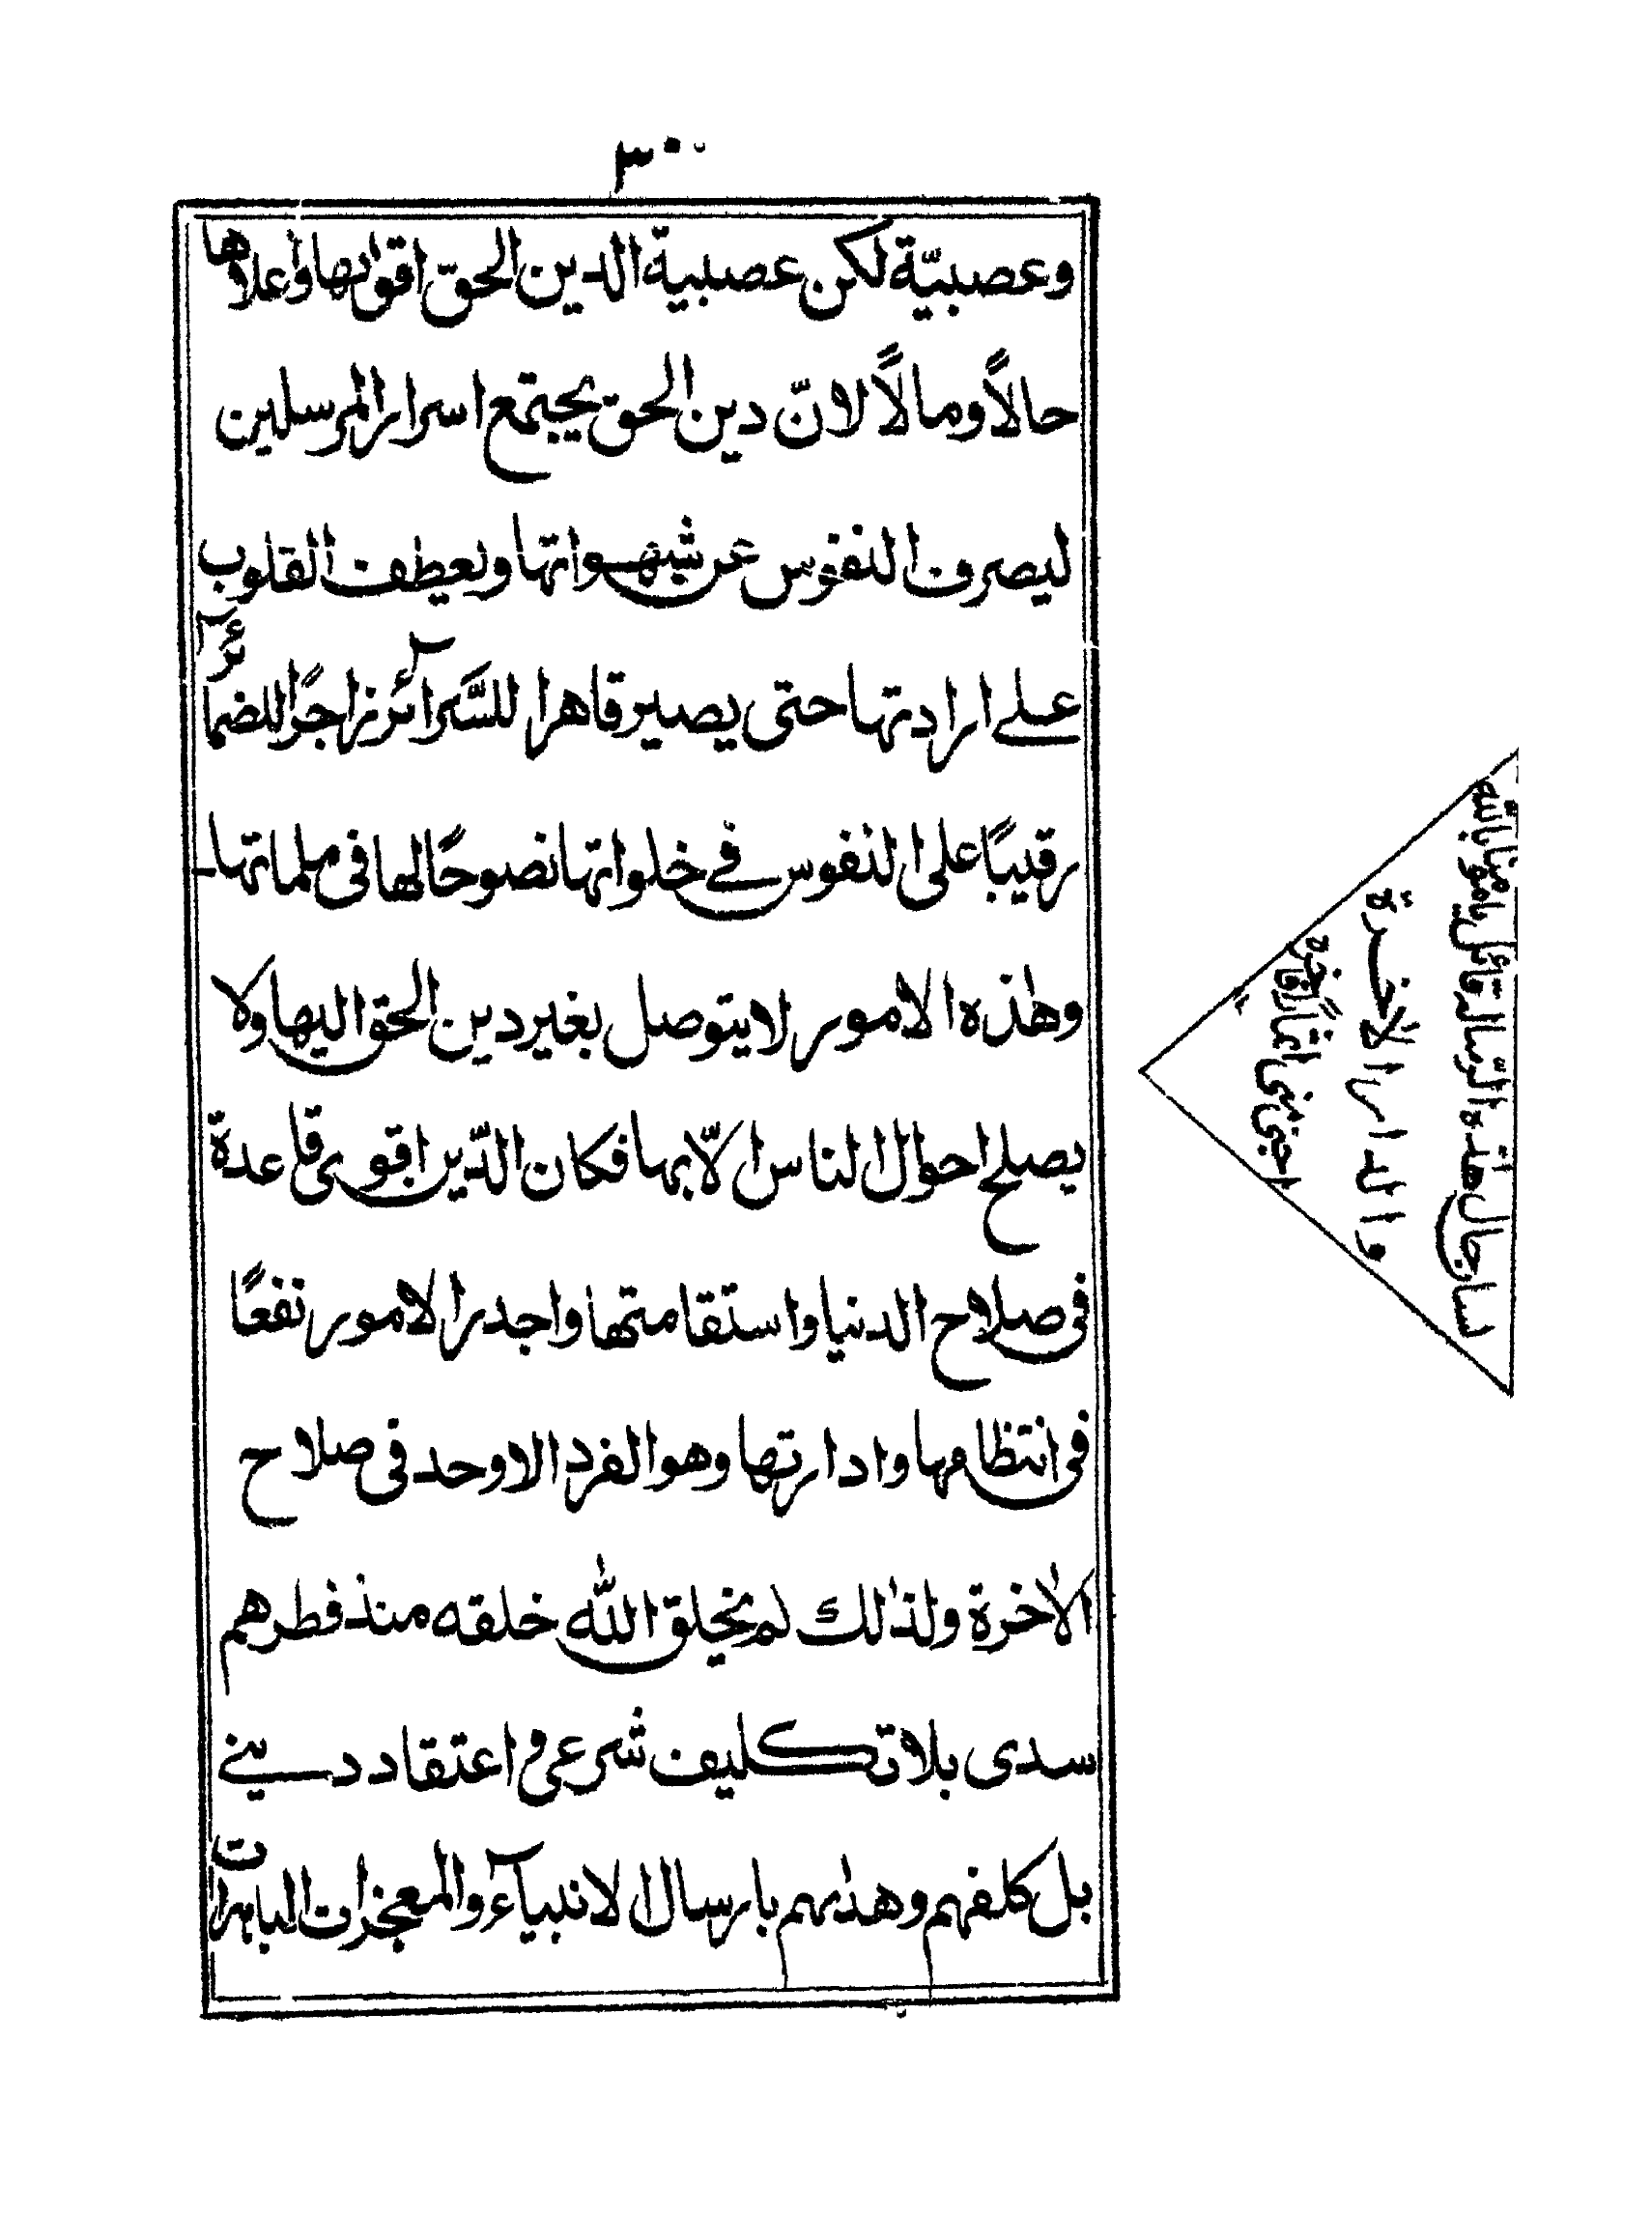 ٣٠
وعصبيّة لكن عصبية الدين الحقّ اقوٰىها واعلاها
حالاً ومالاً لانّ دين الحق يجتمع اسرار المرسلين
ليصرف النفوس عن شهواتها ويعطف القلوب
على ارادتها حتى يصير قاهرا للسَّرآئر زاجرًا للضمآئر
رقيبًا على النفوس في خلواتها نصوحًا لها فى ملماتها
وهٰذه الامور لا يتوصل بغير دين الحق اليها ولا
يصلح احوال الناس الّا بها فكان الدّين اقوى قاعدة
فى صلاح الدنيا واستقامتها واجدر الامور نفعًا
فى انتظامها وادارتها وهو الفرد الاوحد فى صلاح
الاٰخرة ولذٰلك لم يخلق اللّٰه خلقه منذ فطرهم
سدى بلا تكليف شرعى و اعتقاد ديني
بل كلفهم وهدٰىهم بارسال الانبيآء والمعجزات الباهرات
لسا رجال هٰذه الرّسالة قائل يا مؤمنا باللّه
والدار الاخرة